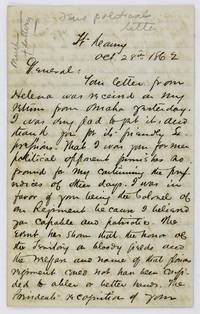 fine political
letter
Ft Kearny
Oct 28th 1862
General:
Your letter from
Helena was received on my
return from Omaha yesterday.
I was very glad to get it, and
thank you for its friendly
That I was your former
political opponent furnishes no
ground for my continuing the
of other days. I was in
favor of your being the Colonel of
our Regiment because I believed
you capable and patriotic. The
event has shown that the honor of
the Territory on bloody fields and
the and name of that
regiment could not have been
to abler or better hands. The
Presidents recognition of your